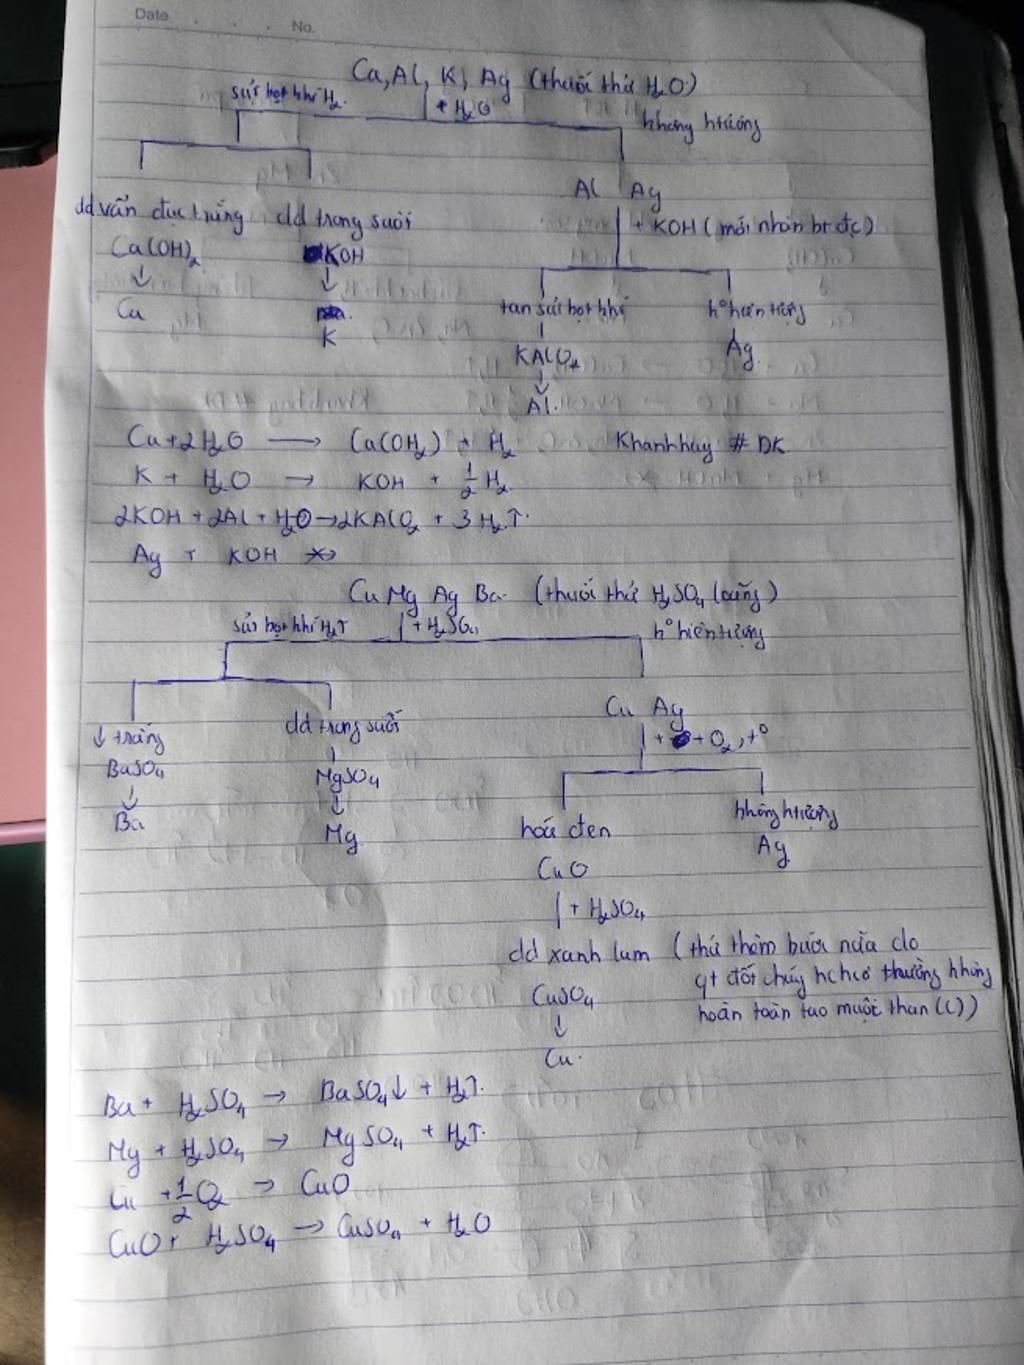 Date
No.
Ca, Al, K, Ag (thuốc thử H₂O)
sủi bọt khí H₂
+ H₂O
không htượng
Al Ag
+ KOH (mới nhận bt đc)
dd vẩn đục trắng
dd trong suốt
Ca(OH)₂
KOH
↓
↓
Ca
K
tan sủi bọt khí
k° hiện tượng
KAlO₂
Ag
↓
Al.
Ca + 2H₂O → Ca(OH₂) + H₂
Khanhhuy # DK
K + H₂O → KOH + 1/2 H₂
2KOH + 2Al + H₂O → 2KAlO₂ + 3H₂↑.
Ag + KOH ↛
Cu Mg Ag Ba (thuốc thử H₂SO₄ loãng)
sủi bọt khí H₂↑
+ H₂SO₄
k° hiện tượng
Cu Ag
+ O₂, t°
↓ trắng
dd trong suốt
BaSO₄
MgSO₄
↓
↓
Ba
Mg
hoá đen
không htượng
CuO
Ag
+ H₂SO₄
dd xanh lam (thử thêm bước nữa do
qt đốt cháy hchcơ thường không
hoàn toàn tạo muội than (C))
CuSO₄
↓
Cu.
Ba + H₂SO₄ → BaSO₄↓ + H₂↑.
Mg + H₂SO₄ → MgSO₄ + H₂↑.
Cu + 1/2 O₂ → CuO
CuO + H₂SO₄ → CuSO₄ + H₂O